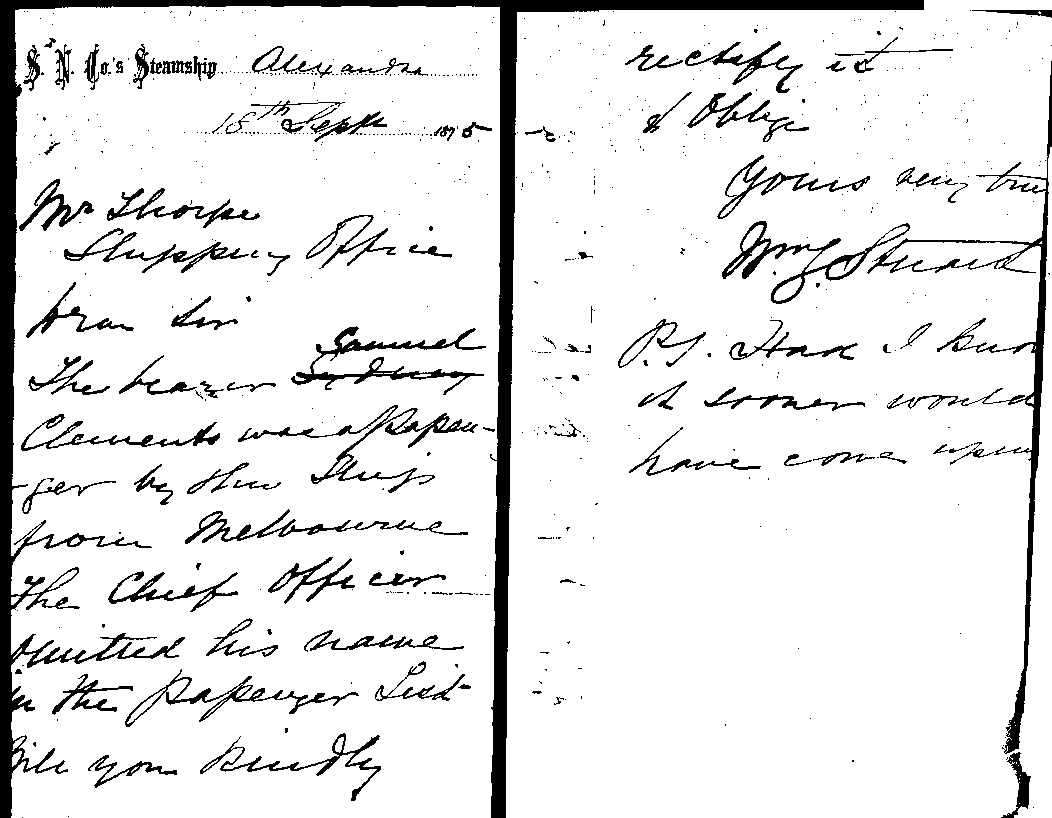 S. N. Co.'s Steamship Alexandra
18th Sept 1875
Mr Thorpe
Shipping Office
Dear Sir
Samuel
The bearer Sydney
Clements was a Passen-
-ger by this Ship
from Melbourne
The Chief Officer
omitted his name
in the Passenger List
Will you kindly
rectify it
& Oblige
Yours very tru
Wm. Stuart
P.S. Had I know
it sooner would
have come upon